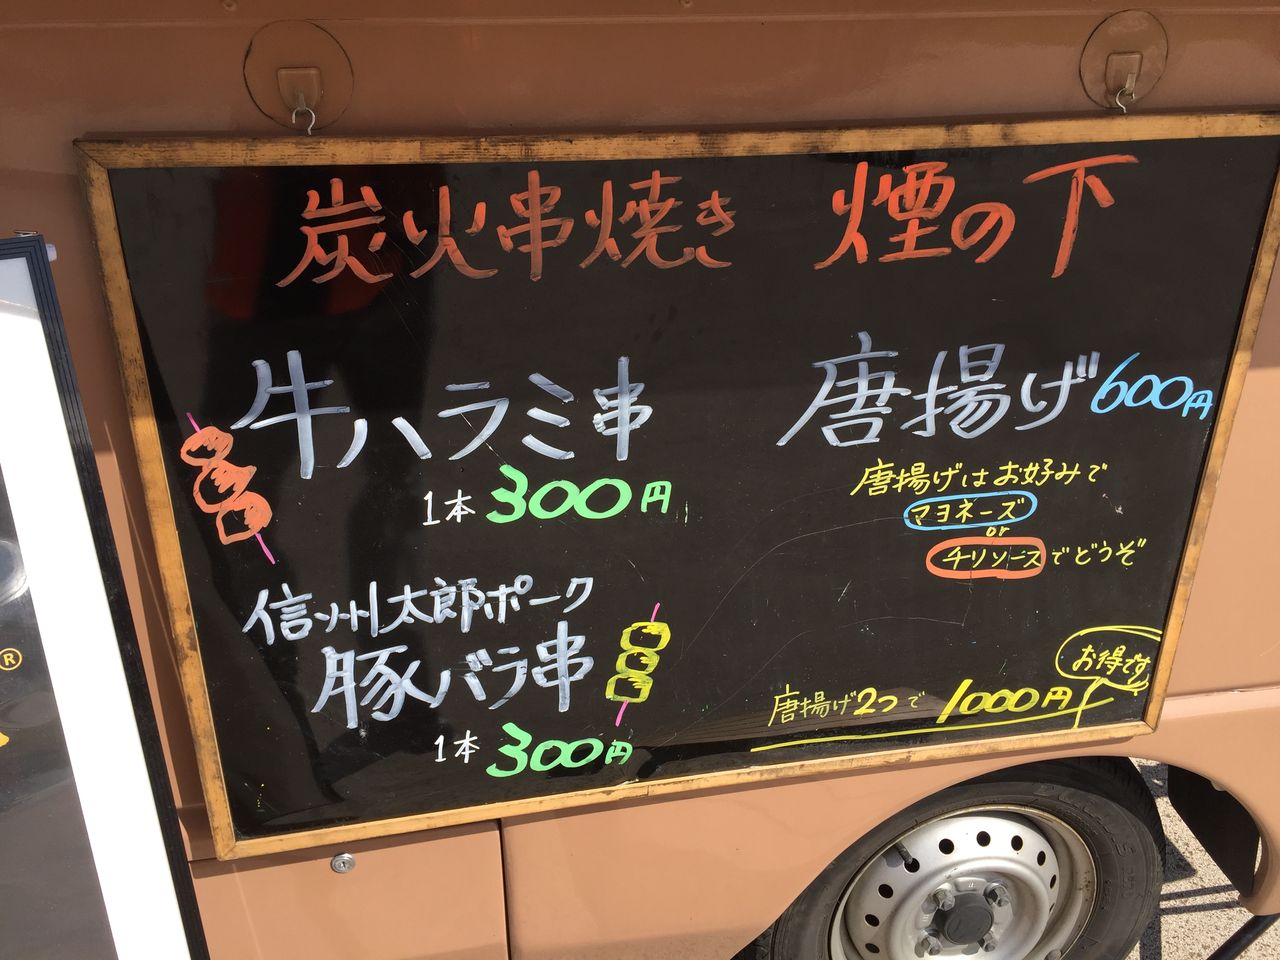 炭火串焼き 煙の下
牛ハラミ串
1本 300円
信州太郎ポーク
豚バラ串
1本 300円
唐揚げ 600円
唐揚げはお好みで
マヨネーズ
or
チリソースでどうぞ
お得です
唐揚げ2つで 1000円
®